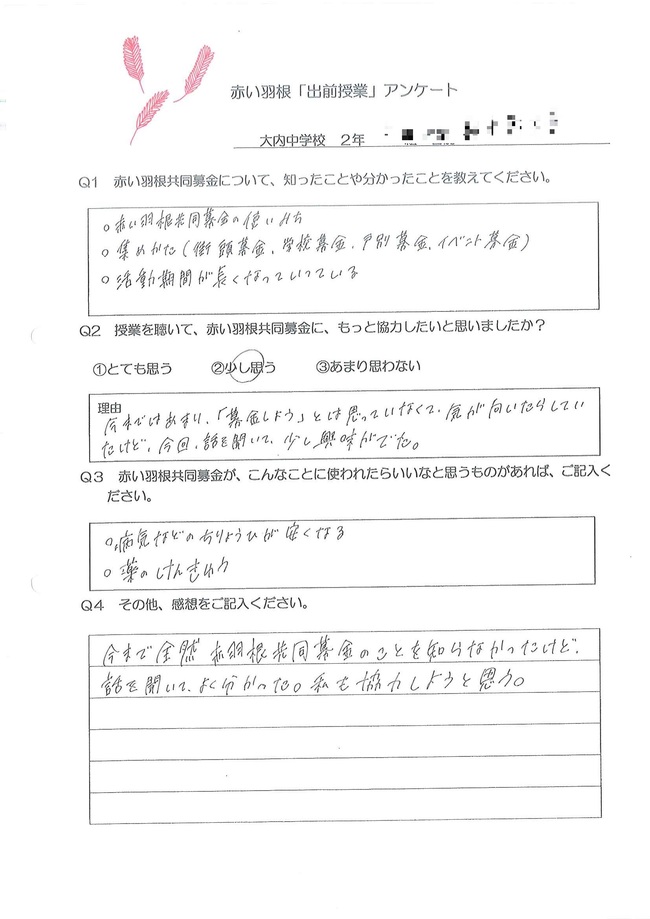 赤い羽根「出前授業」アンケート
大内中学校 2年
Q1 赤い羽根共同募金について、知ったことや分かったことを教えてください。
○赤い羽根共同募金の使いみち
○集めかた(街頭募金、学校募金、戸別募金、イベント募金)
○活動期間が長くなっていっている
Q2 授業を聴いて、赤い羽根共同募金に、もっと協力したいと思いましたか?
①とても思う ②少し思う ③あまり思わない
理由
今まではあまり、「募金しよう」とは思っていなくて、気が向いたらしてい
たけど、今回、話を聞いて、少し興味がでた。
Q3 赤い羽根共同募金が、こんなことに使われたらいいなと思うものがあれば、ご記入く
ださい。
○病気などのちりょうひが安くなる
○薬のけんきゅう
Q4 その他、感想をご記入ください。
今まで全然赤羽根共同募金のことを知らなかったけど、
話を聞いて、よく分かった。私も協力しようと思う。